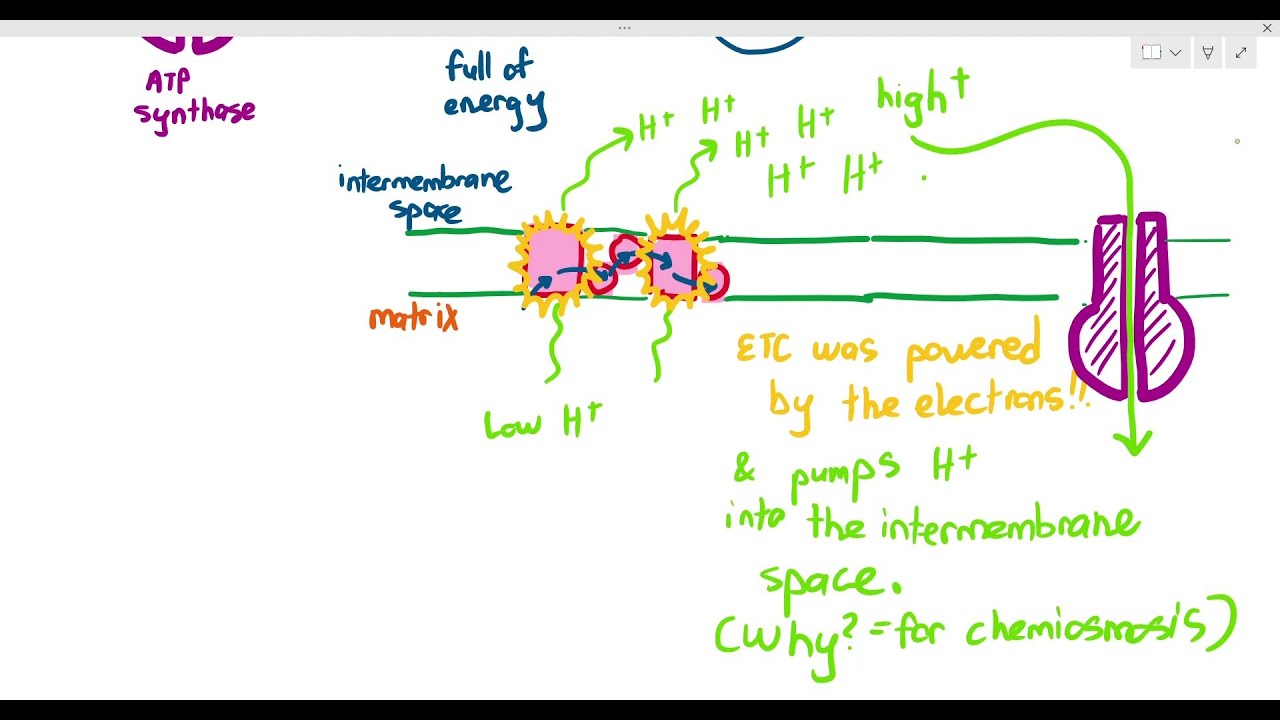 ATP
synthase
full of
energy
high+
H+ H+
H+ H+
H+ H+
intermembrane
space
matrix
Low H+
ETC was powered
by the electrons!!
& pumps H+
into the intermembrane
space.
(Why? = for chemiosmosis)